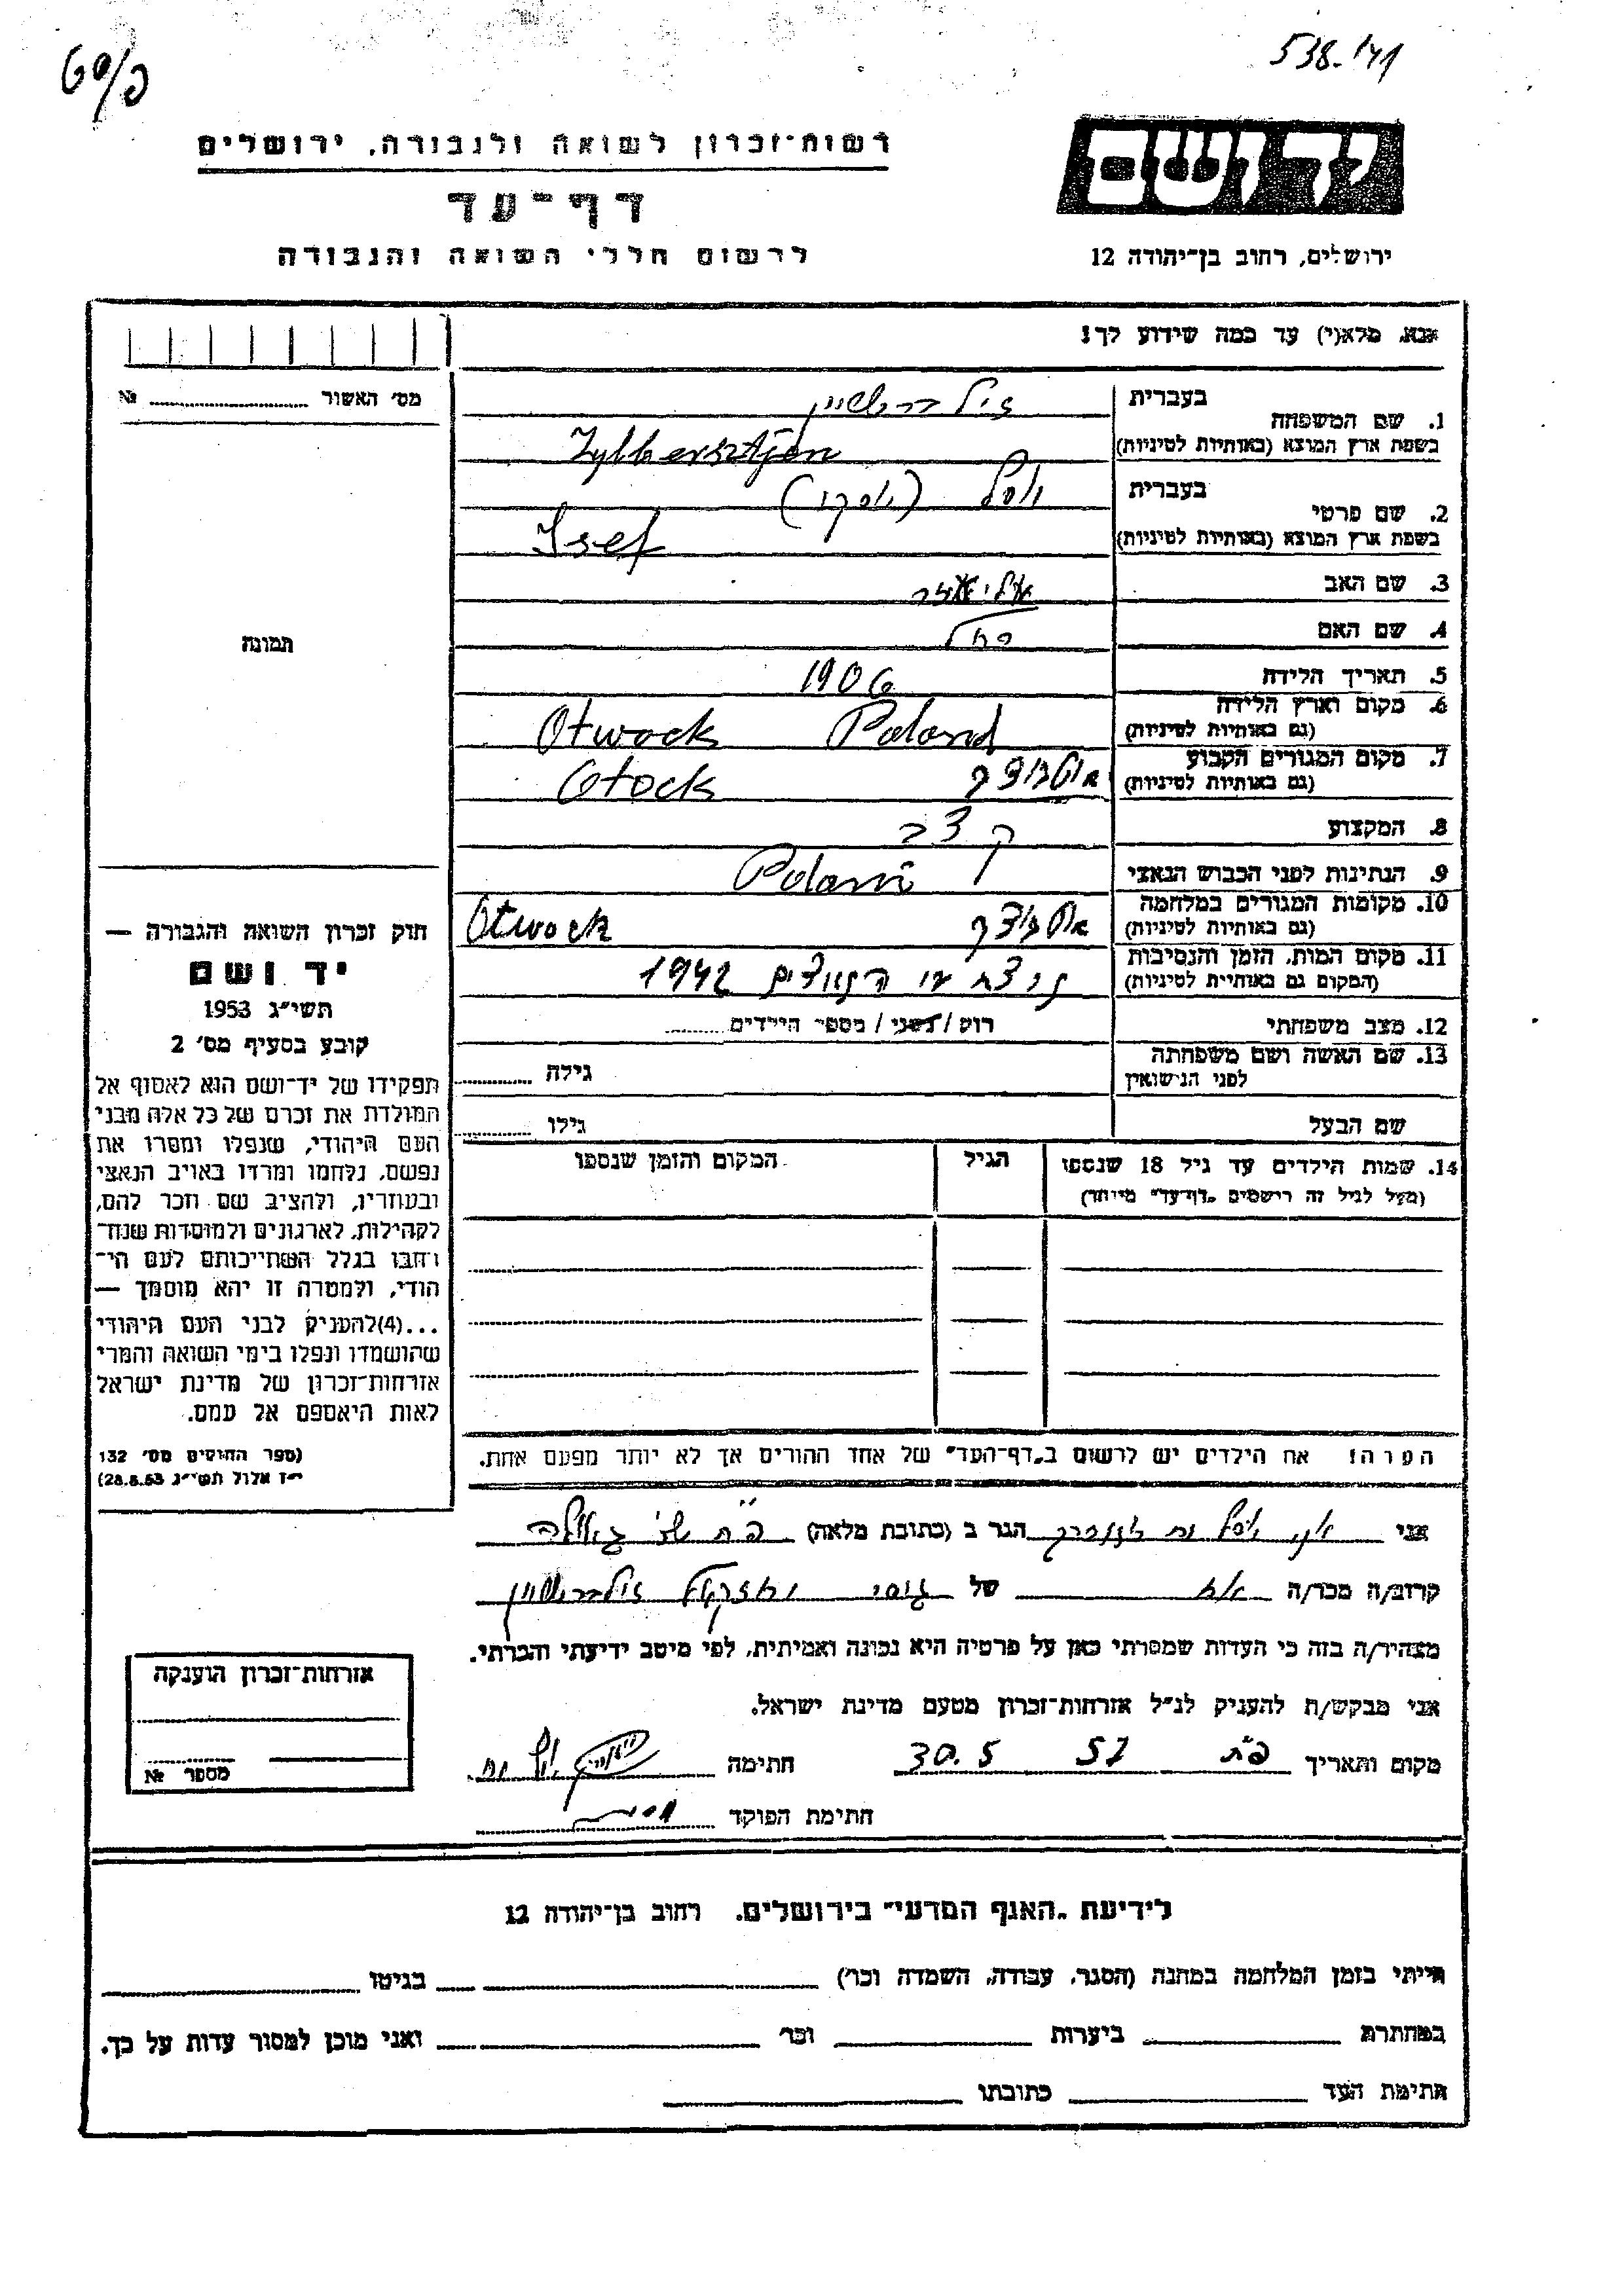 538-141
רשות־זכרון לשואה ולגבורה, ירושלים
יד ושם
דף־עד
לרשום חללי השואה והגבורה
ירושלים, רחוב בן־יהודה 12
אנא, מלא(י) עד כמה שידוע לך!
מס׳ האשור № ........
1. שם המשפחה
בעברית זילברשטיין
בשפת ארץ המוצא (באותיות לטיניות) Zylbersztajn
2. שם פרטי
בעברית יוסף
בשפת ארץ המוצא (באותיות לטיניות) Isef
3. שם האב אליעזר
4. שם האם רחל
5. תאריך הלידה 1906
6. מקום וארץ הלידה Otwock Poland
(גם באותיות לטיניות)
7. מקום המגורים הקבוע אוטבוצק Otock
(גם באותיות לטיניות)
8. המקצוע קצב
9. הנתינות לפני הכבוש הנאצי
10. מקומות המגורים במלחמה אוטבוצק Otwock
(גם באותיות לטיניות)
11. מקום המות, הזמן והנסיבות נרצח ע״י הנאצים 1942
(המקום גם באותיות לטיניות)
12. מצב משפחתי רוק / נשוי / מספר הילדים ........
13. שם האשה ושם משפחתה גילה ........
לפני הנישואין
שם הבעל גילו ........
14. שמות הילדים עד גיל 18 שנספו הגיל המקום והזמן שנספו
(מעל לגיל זה רושמים „דף־עד״ מיוחד)
תמונה
חוק זכרון השואה והגבורה —
יד ושם
תשי״ג 1953
קובע בסעיף מס׳ 2
תפקידו של יד־ושם הוא לאסוף אל
המולדת את זכרם של כל אלה מבני
העם היהודי, שנפלו ומסרו את
נפשם, נלחמו ומרדו באויב הנאצי
ובעוזריו, ולהציב שם וזכר להם,
לקהילות, לארגונים ולמוסדות שנח־
רחבו בגלל השתייכותם לעם הי־
הודי, ולמטרה זו יהא מוסמך —
...(4)להעניק לבני העם היהודי
שהושמדו ונפלו בימי השואה והמרי
אזרחות־זכרון של מדינת ישראל
לאות היאספם אל עמם.
(ספר החוקים מס׳ 132
י״ז אלול תשי״ג 28.8.53)
הערה! את הילדים יש לרשום ב„דף־העד״ של אחד ההורים אך לא יותר מפעם אחת.
אני הגר ב (כתובת מלאה) פ״ת
קרוב/ה מכר/ה אח של זילברשטיין
מצהיר/ה בזה כי העדות שמסרתי כאן על פרטיה היא נכונה ואמיתית, לפי מיטב ידיעתי והכרתי.
אני מבקש/ת להעניק לנ״ל אזרחות־זכרון מטעם מדינת ישראל.
מקום ותאריך פ״ת 57 30.5 חתימה
חתימת הפוקד
אזרחות־זכרון הוענקה
מספר №
לידיעת „האגף המדעי״ בירושלים, רחוב בן־יהודה 12
הייתי בזמן המלחמה במחנה (הסגר, עבודה, השמדה וכו׳) בגיטו
במחתרת ביערות וכו׳ ואני מוכן למסור עדות על כך.
חתימת העד כתובתו